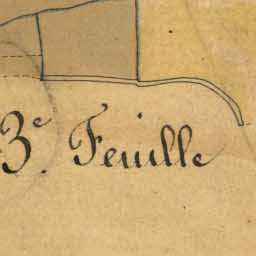 3e. Feuille